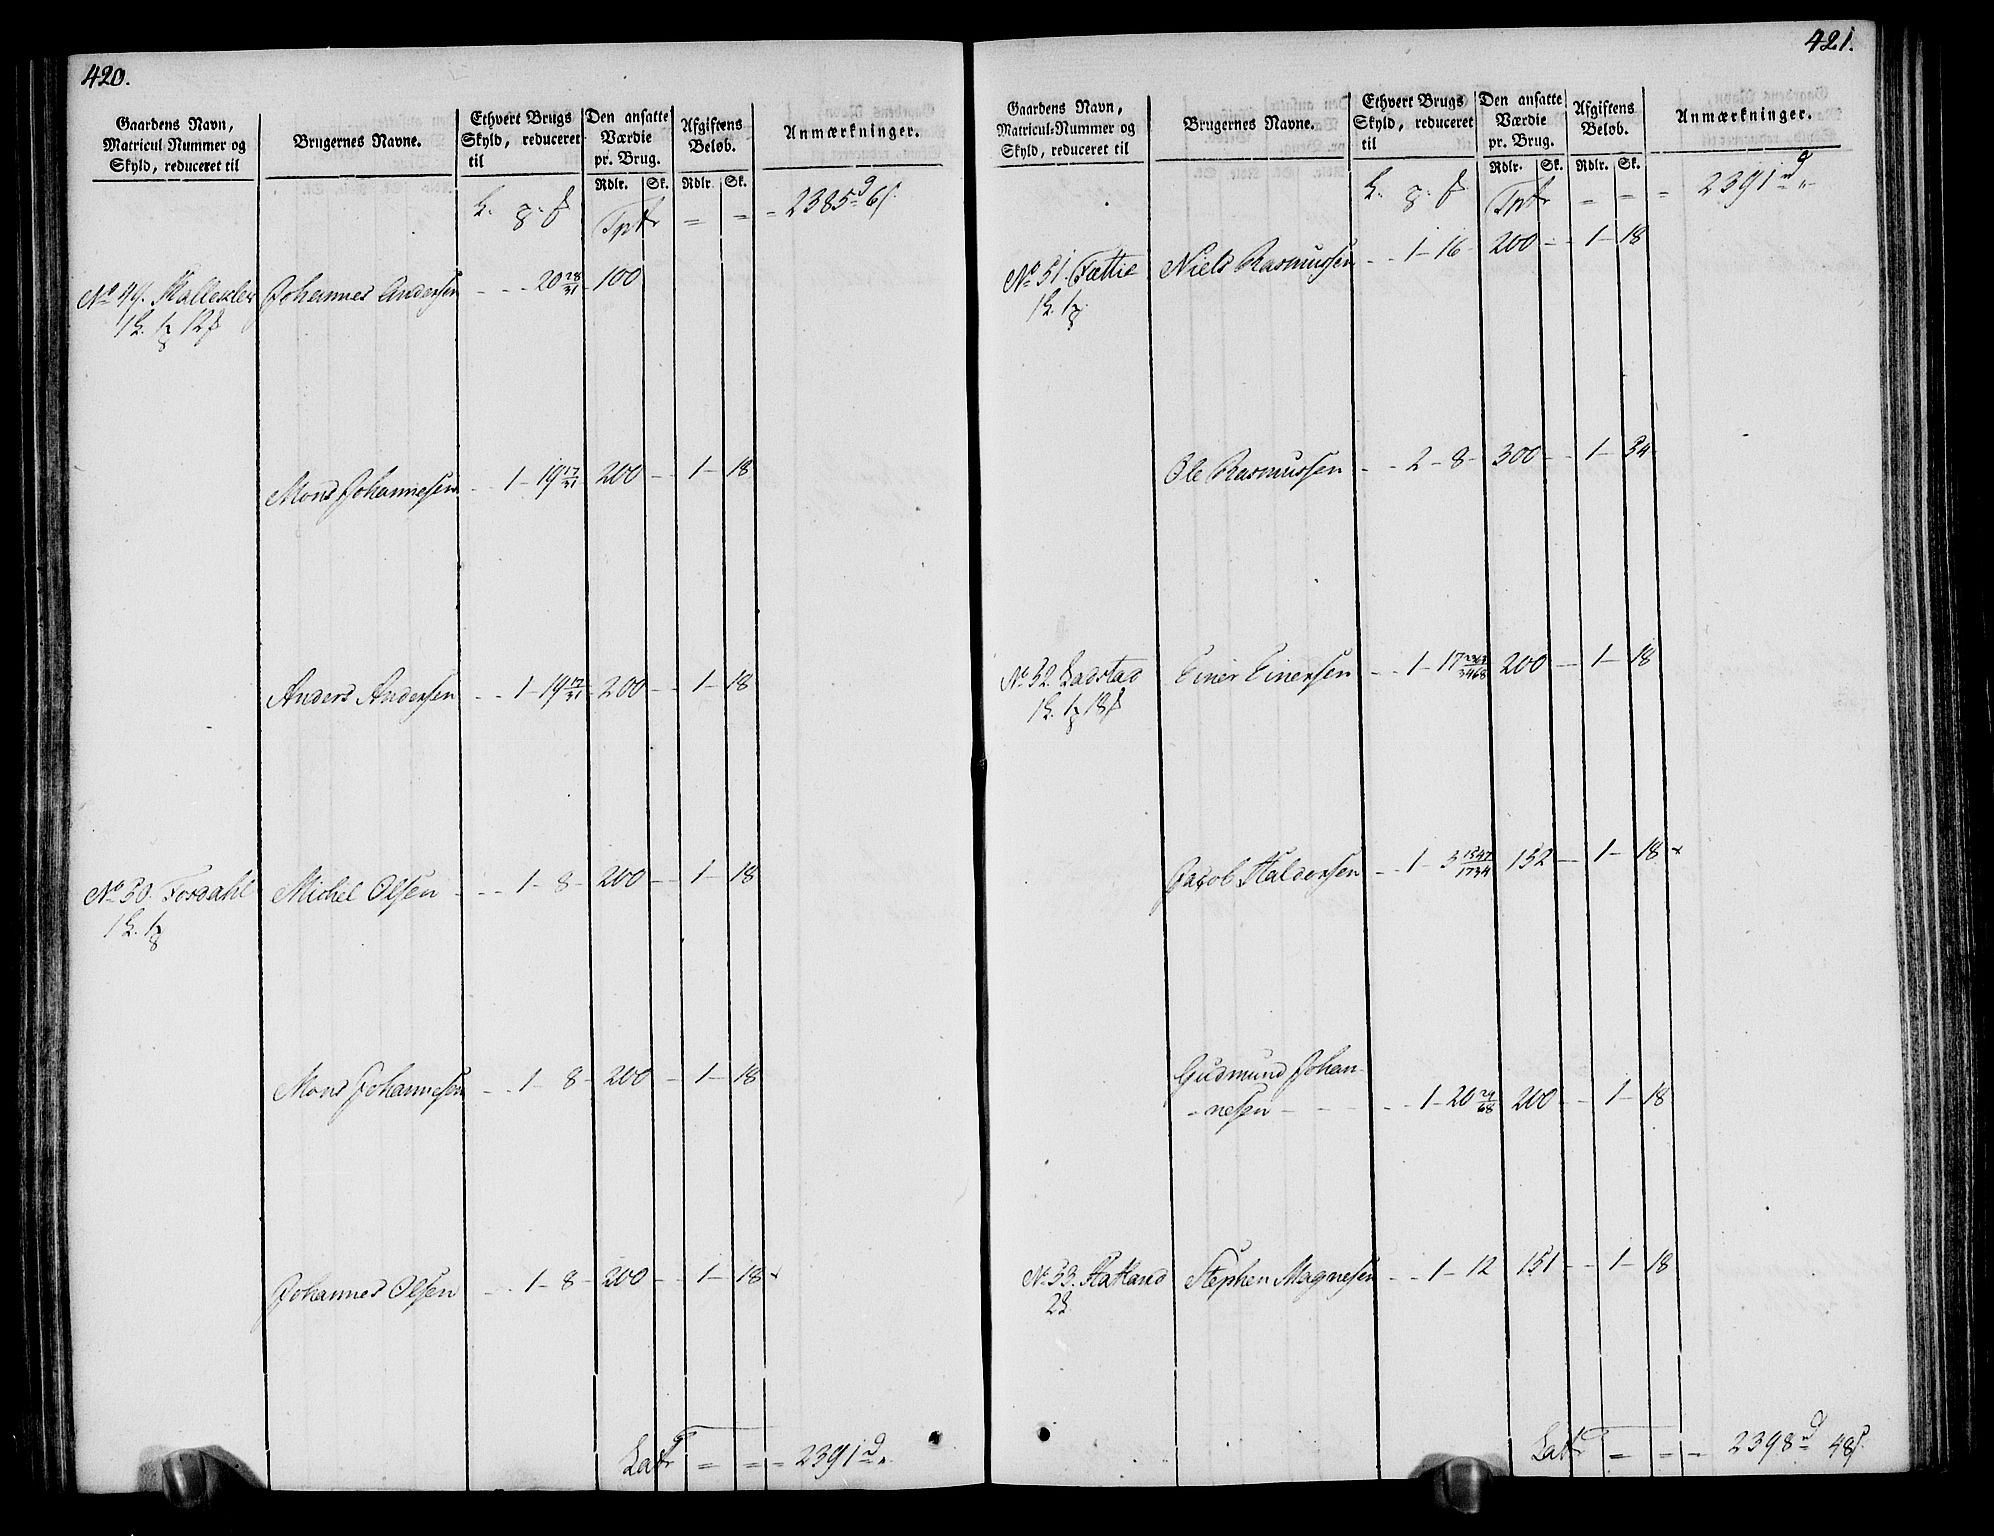 420.
Gaardens Navn,
Matricul Nummer og
Skyld, reduceret til
Brugernes Navne.
Ethvert Brugs
Skyld, reduceret
til
Den ansatte
Værdie
pr. Brug.
Rdlr. Sk.
Afgiftens
Beløb.
Rdlr. Sk.
Anmærkninger.
Tpt = = = 2385 d 6 s.
No 49. Johannes Andersen - - - 20 28/31 100
Mons Johannesen - - 1 - 19 17/31 200 - - 1 - 18
Anders Andersen - - 1 - 19 17/31 200 - - 1 - 18
No 50. Fosdahl Michel Olsen - - - 1 - 8 - 200 - - 1 - 18
Mons Johannesen - - - 1 - 8 - 200 - - 1 - 18
Johannes Olsen - - - 1 - 8 - 200 - - 1 - 18
Lat = = = 2391 d
421.
Gaardens Navn,
Matricul-Nummer og
Skyld, reduceret til
Brugernes Navne.
Ethvert Brugs
Skyld, reduceret
til
Den ansatte
Værdie
pr. Brug.
Rdlr. Sk.
Afgiftens
Beløb.
Rdlr. Sk.
Anmærkninger.
Tpt = = = 2391 d
No 51. Tættie Niels Rasmussen - - 1 - 16 - 200 - - 1 - 18
Ole Rasmussen - - 2 - 8 - 300 - - 1 - 84
No 52. Ladstad Einer Einersen - - 1 - 17 200 - 1 - 18
Jacob Haldorsen - - 1 - 3 1347/1734 152 - 1 - 18
Gudmund Johan-
- nesen - - - - - 1 - 20 29/68 200 - - 1 - 18
No 53. Flatland Stephen Magnesen - - 1 - 12 151 - - 1 - 18
Lat = = = 2398 d 48 s.